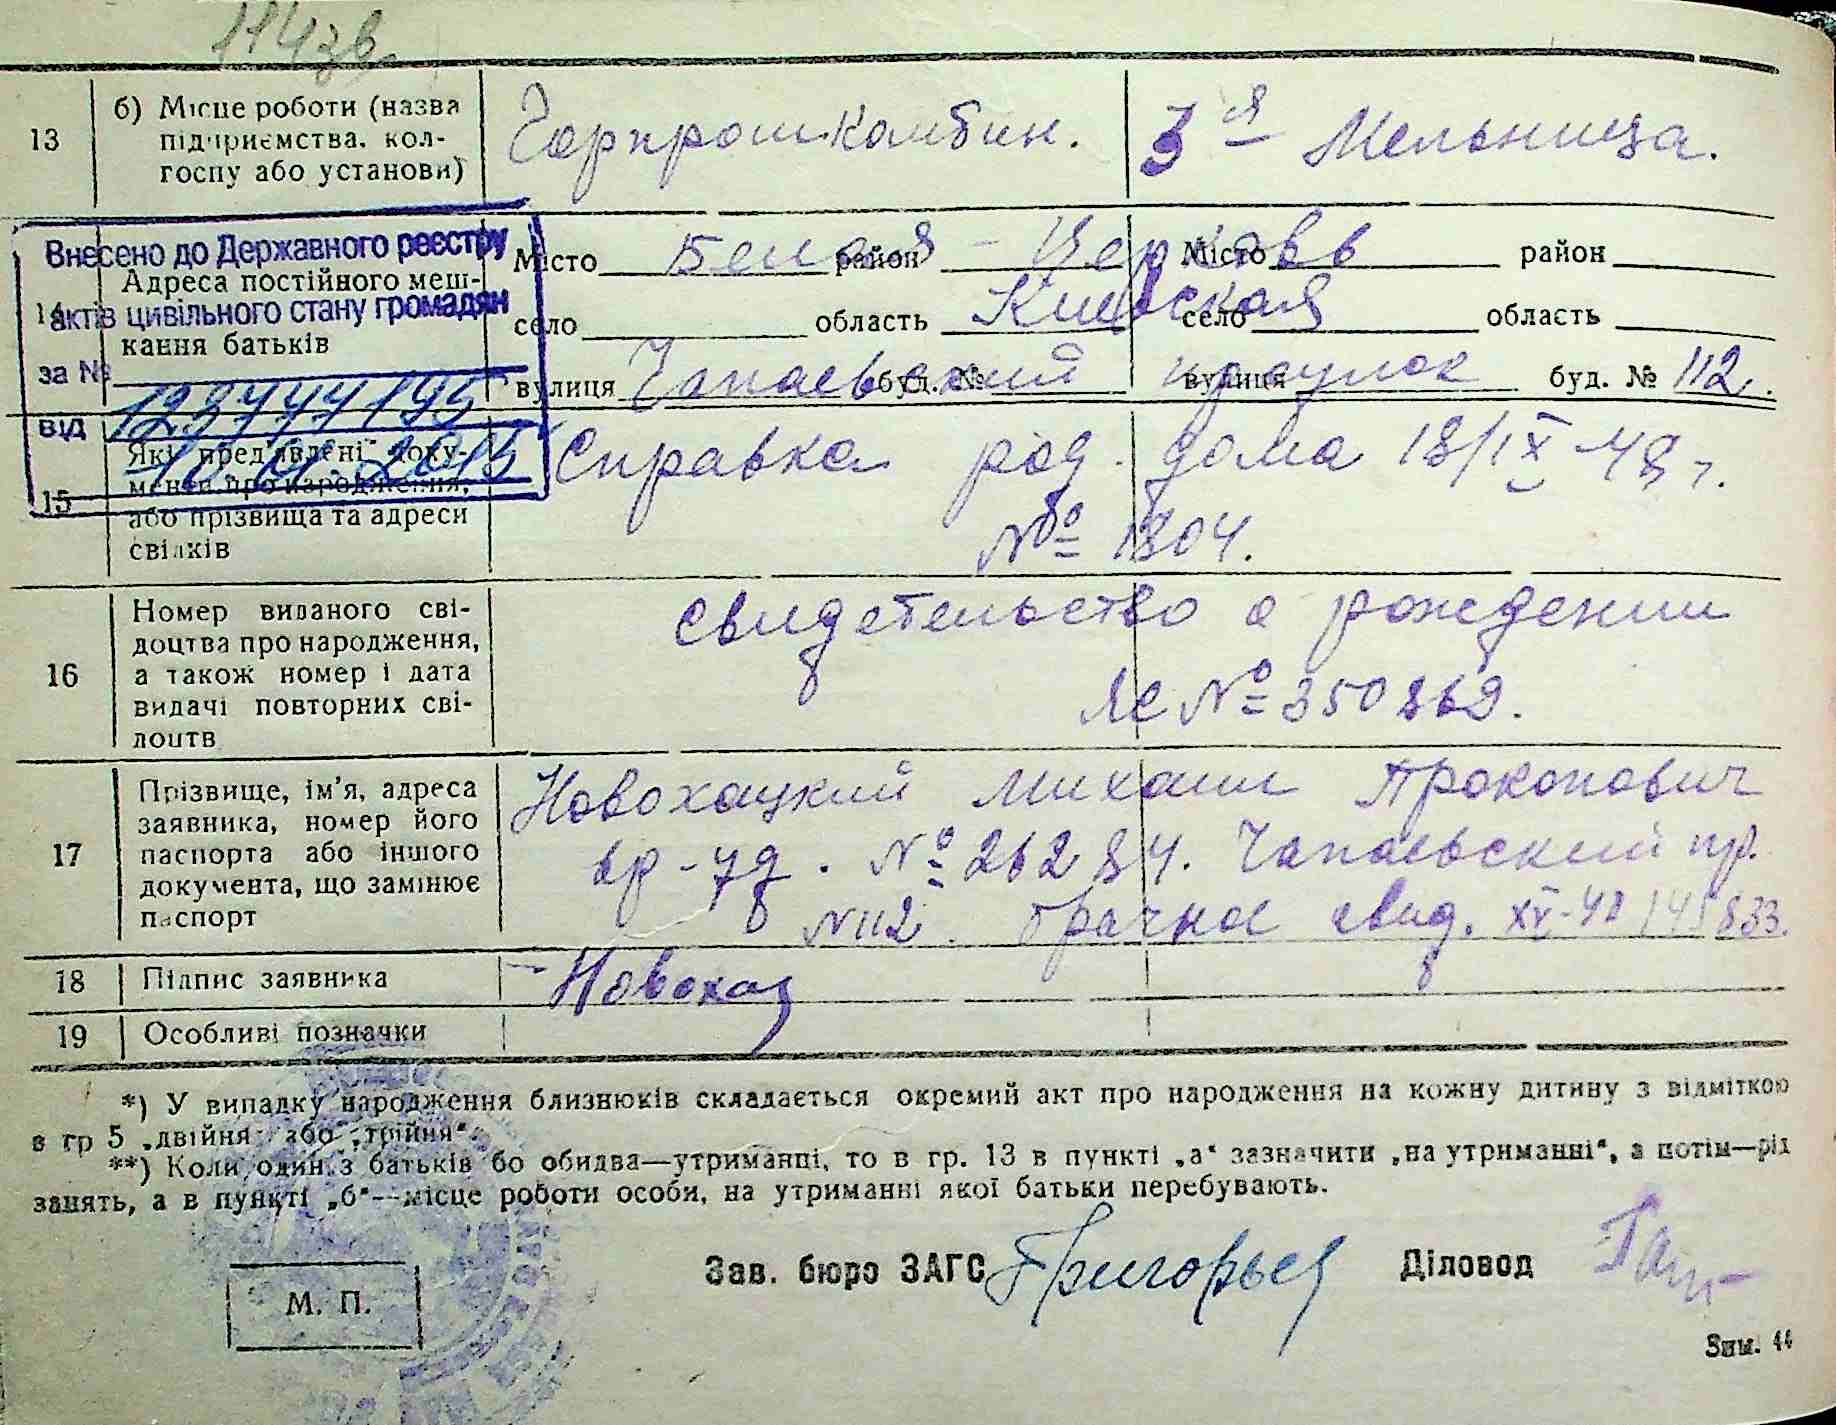 114зв.
13 б) Місце роботи (назва
підприємства, кол-
госпу або установи)
Горпромкомбин. 3я Мельница.
Внесено до Державного реєстру
актів цивільного стану громадян
за №
від
14 Адреса постійного меш-
кання батьків
Місто Белая район - Церковь Місто район
село область Киевская село область
вулиця Чапаевский буд. № вулиця буд. № 112.
15 Які пред'явлені доку-
менти про народження,
або прізвища та адреси
свідків
Справка род. дома 18/IX-48 г.
№ 1804.
16 Номер виданого сві-
доцтва про народження,
а також номер і дата
видачі повторних сві-
доцтв
Свидетельство о рождении
ЯС № 350869.
17 Прізвище, ім'я, адреса
заявника, номер його
паспорта або іншого
документа, що замінює
паспорт
Новохацкий Михаил Прокопович
вр-уд. № 26284. Чапаевский пр.
N112. Брачное свид.
18 Підпис заявника
Новохац
19 Особливі позначки
*) У випадку народження близнюків складається окремий акт про народження на кожну дитину з відміткою
в гр 5 „двійня" або „трійня".
**) Коли один з батьків бо обидва—утриманці, то в гр. 13 в пункті „а" зазначити „на утриманні", а потім—рід
занять, а в пункті „б"—місце роботи особи, на утриманні якої батьки перебувають.
Зав. бюро ЗАГС Григорьев Діловод
М. П.
Зам. 44